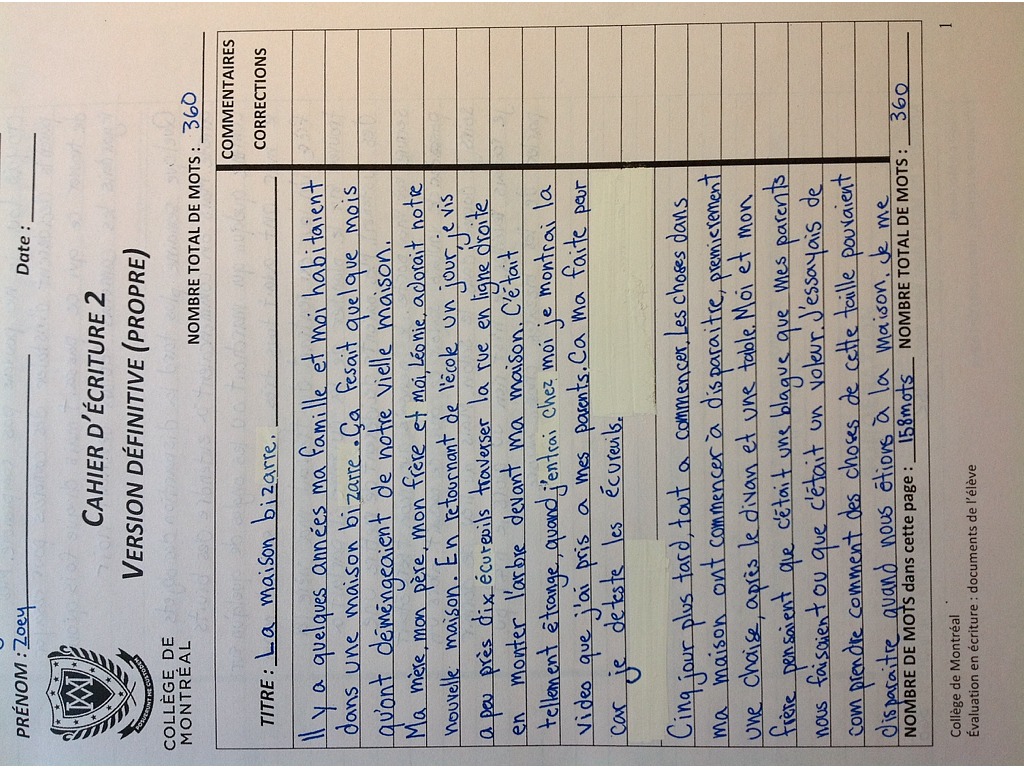 PRÉNOM : Zoey
Date :
CAHIER D'ÉCRITURE 2
VERSION DÉFINITIVE (PROPRE)
COLLÈGE DE
MONTRÉAL
NOMBRE TOTAL DE MOTS : 360
TITRE : La maison bizarre.
COMMENTAIRES
CORRECTIONS
Il y a quelques années ma famille et moi habitaient
dans une maison bizarre. Ça fesait quelque mois
qu'ont déméngeaient de notre vielle maison.
Ma mière, mon père, mon frère et moi, Léonie, adorait notre
nouvelle maison. En retournant de l'école un jour, je vis
a peu près dix écureuils traverser la rue en ligne droite
en monter l'arbre devant ma maison. C'était
tellement étrange, quand j'entrai chez moi je montrai la
video que j'ai pris a mes parents. Ca ma faite peur
car je déteste les écureils.
Cinq jour plus tard, tout a commencer. Les choses dans
ma maison ont commencer à disparaitre, premièrement
une chaise, après le divan et une table. Moi et mon
frère pensaient que c'était une blague que mes parents
nous faisaient ou que c'était un voleur. J'essayais de
comprendre comment des choses de cette taille pouvaient
disparaitre quand nous étions à la maison. Je me
NOMBRE DE MOTS dans cette page : 158mots NOMBRE TOTAL DE MOTS : 360
Collège de Montréal
Évaluation en écriture : documents de l'élève
1